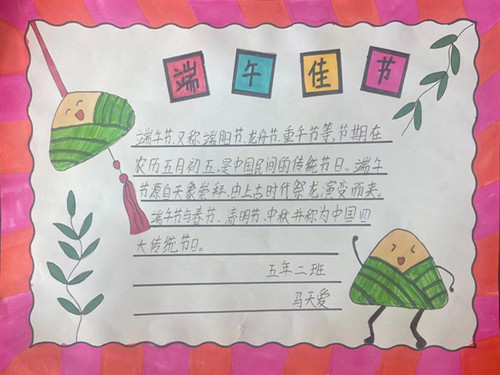 端午佳节
端午节,又称端阳节、龙舟节、重午节等,节期在
农历五月初五,是中国民间的传统节日。端午
节源自天象崇拜,由上古时代祭龙演变而来。
端午节与春节、清明节、中秋并称为中国四
大传统节日。
五年二班
马天爱